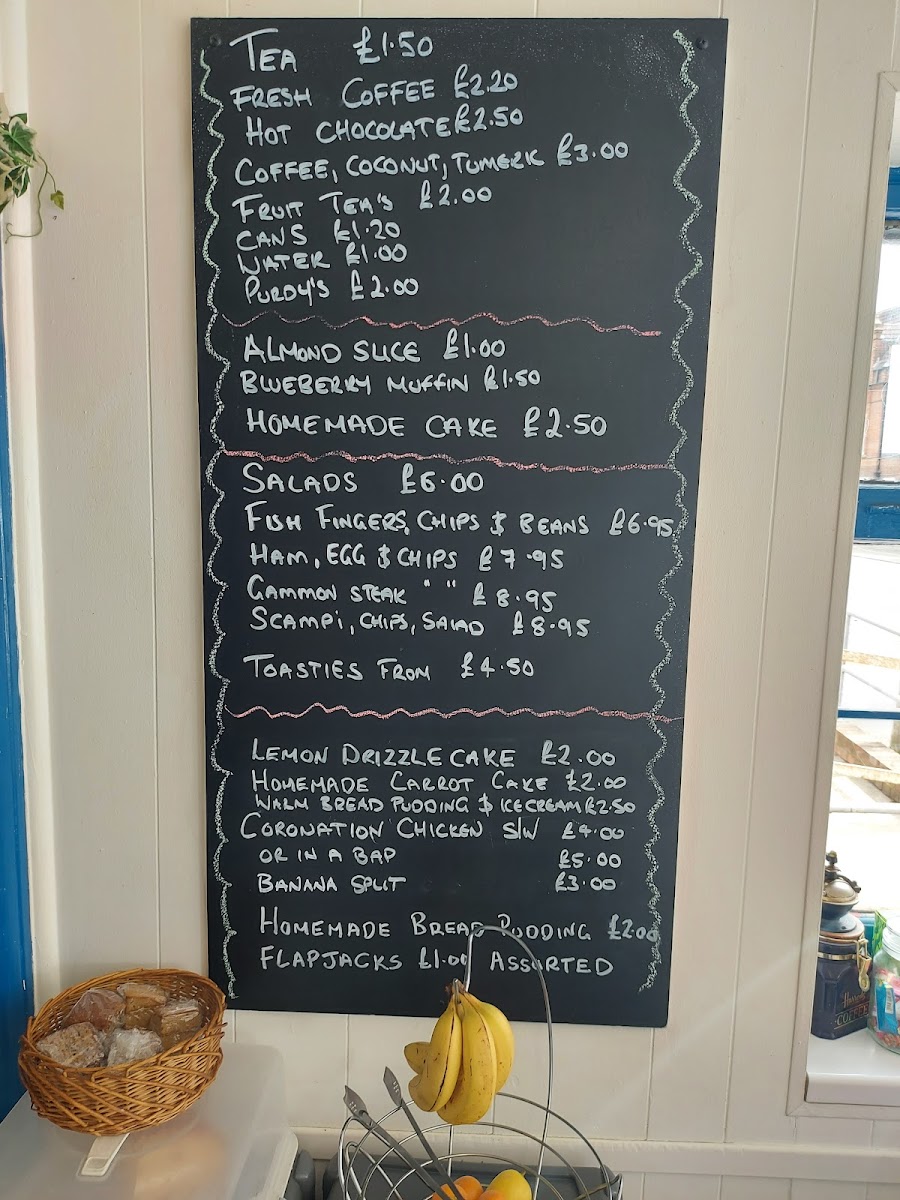 TEA £1.50
FRESH COFFEE £2.20
HOT CHOCOLATE £2.50
COFFEE, COCONUT, TUMERIK £3.00
FRUIT TEA'S £2.00
CANS £1.20
WATER £1.00
PURDY'S £2.00
ALMOND SLICE £1.00
BLUEBERRY MUFFIN £1.50
HOMEMADE CAKE £2.50
SALADS £6.00
FISH FINGERS, CHIPS & BEANS £6.95
HAM, EGG & CHIPS £7.95
GAMMON STEAK " " £8.95
SCAMPI, CHIPS, SALAD £8.95
TOASTIES FROM £4.50
LEMON DRIZZLE CAKE £2.00
HOMEMADE CARROT CAKE £2.00
WARM BREAD PUDDING & ICECREAM £2.50
CORONATION CHICKEN S/W £4.00
OR IN A BAP £5.00
BANANA SPLIT £3.00
HOMEMADE BREAD PUDDING £2.00
FLAPJACKS £1.00 ASSORTED
COFFEE